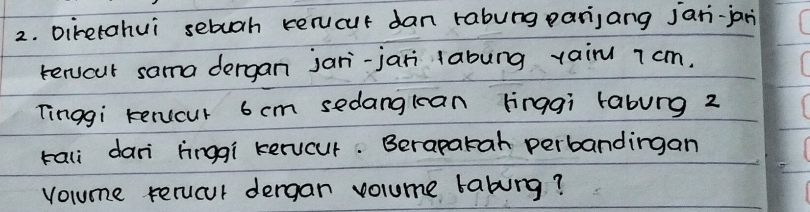 2. Diketahui sebuah kerucut dan tabung panjang jari-jari
kerucut sama dengan jari-jari tabung yaitu 7 cm.
Tinggi kerucut 6 cm sedangkan tinggi tabung 2
kali dari tinggi kerucut. Berapakah perbandingan
volume kerucut dengan volume tabung?